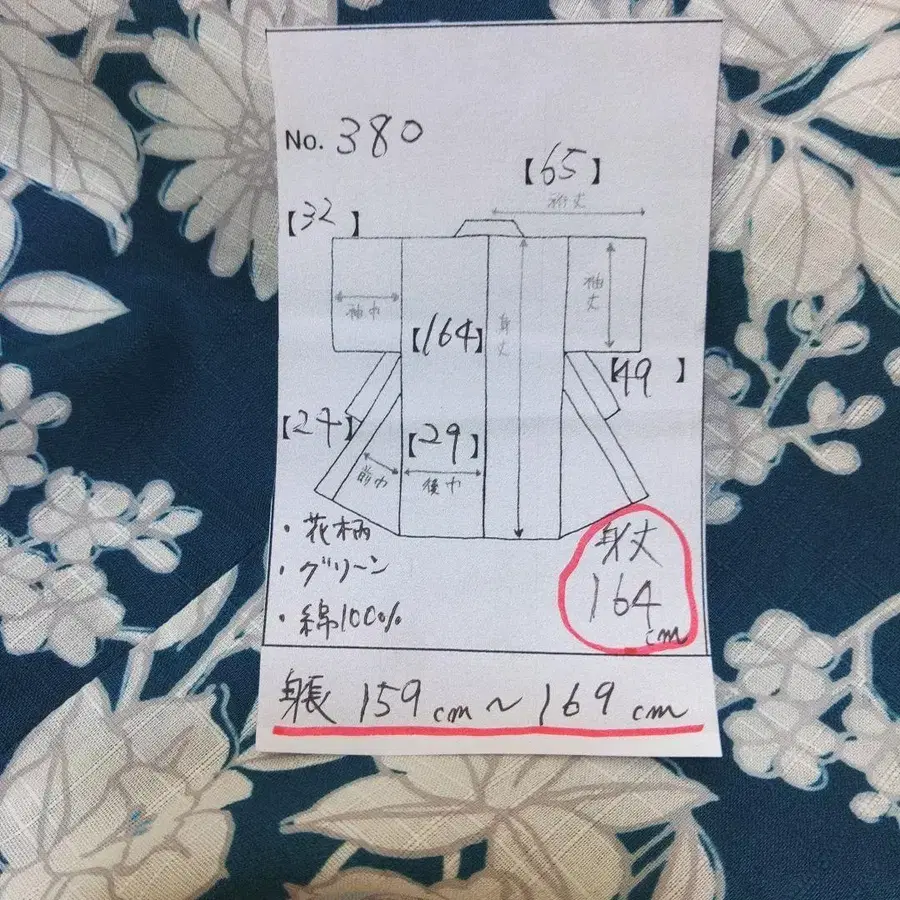 No. 380
【65】
裄丈
【32】
袖巾
袖丈
身丈
【164】
【49】
【24】
【29】
前巾
後巾
・花柄
・グリーン
・綿100%
身丈
164
cm
身長 159cm～169cm